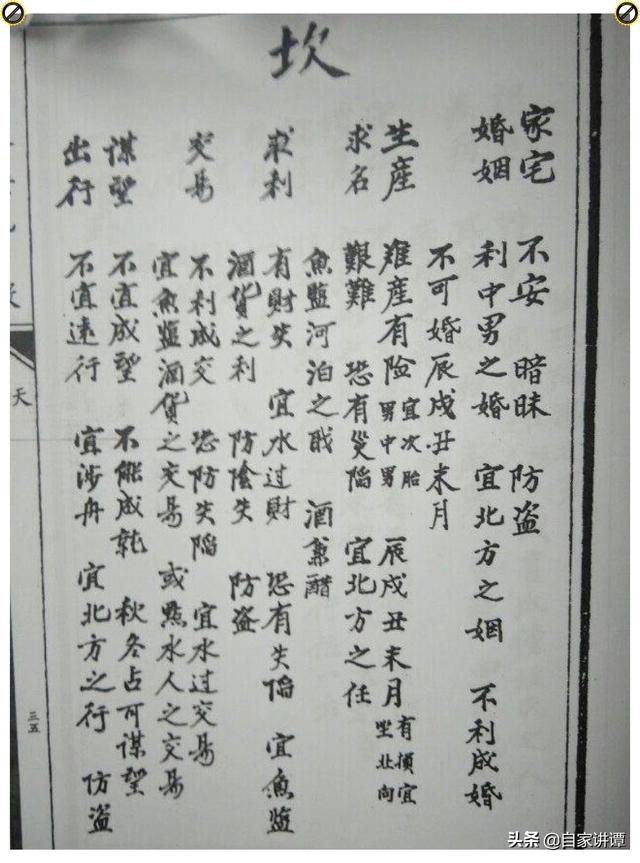 坎
家宅　不安　暗昧　防盗
婚姻　利中男之婚　宜北方之姻　不利成婚
不可婚辰戌丑未月
生産　难産有险　宜次胎男中男　辰戌丑未月　有損宜坐北向
求名　艱難　恐有災陷　宜北方之任
魚盬河泊之戢　酒兼醋
求利　有財失　宜水过財　恐有失陷　宜魚盬
酒貨之利　防陰失　防盗
交易　不利成交　恐防失陷　宜水过交易
宜魚盬酒貨之交易　或點水人之交易
谋望　不宜成望　不能成就　秋冬占可谋望
出行　不宜遠行　宜涉舟　宜北方之行　防盗
天
三五
头条 @自家讲谭